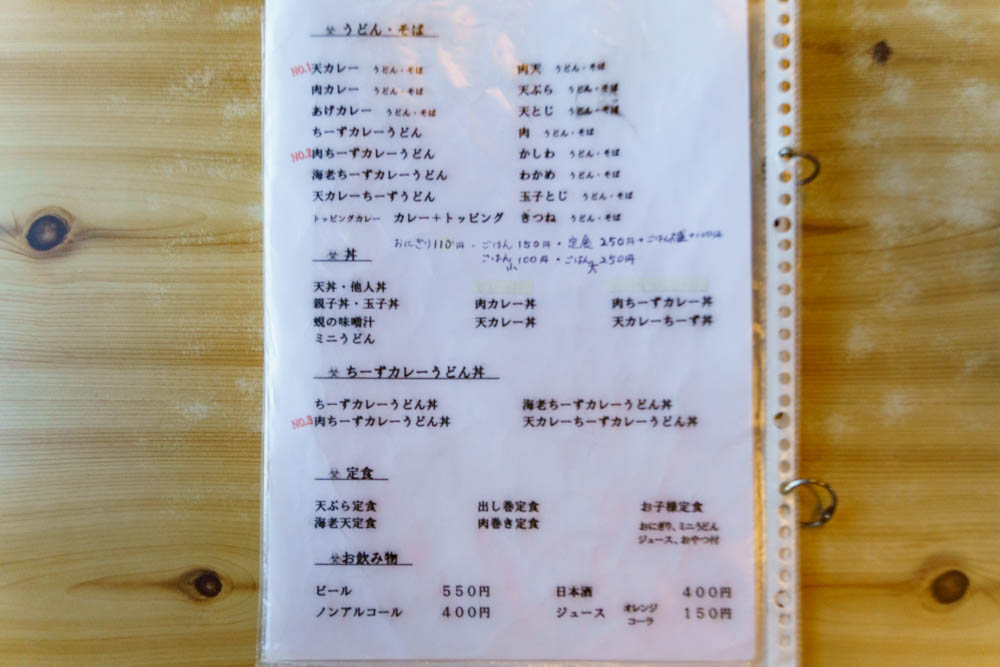 うどん・そば
NO.1 天カレー うどん・そば 肉天 うどん・そば
肉カレー うどん・そば 天ぷら うどん・そば
あげカレー うどん・そば 天とじ うどん・そば
ちーずカレーうどん 肉 うどん・そば
NO.2 肉ちーずカレーうどん かしわ うどん・そば
海老ちーずカレーうどん わかめ うどん・そば
天カレーちーずうどん 玉子とじ うどん・そば
トッピングカレー カレー+トッピング きつね うどん・そば
おにぎり110円・ごはん150円・定食250円・ごはん大盛+100円
丼 ごはん小100円・ごはん大250円
天丼・他人丼
親子丼・玉子丼 肉カレー丼 肉ちーずカレー丼
蜆の味噌汁 天カレー丼 天カレーちーず丼
ミニうどん
ちーずカレーうどん丼
ちーずカレーうどん丼 海老ちーずカレーうどん丼
NO.3 肉ちーずカレーうどん丼 天カレーちーずカレーうどん丼
定食
天ぷら定食 出し巻定食 お子様定食
海老天定食 肉巻き定食 おにぎり、ミニうどん
ジュース、おやつ付
お飲み物
ビール 550円 日本酒 400円
ノンアルコール 400円 ジュース オレンジ コーラ 150円